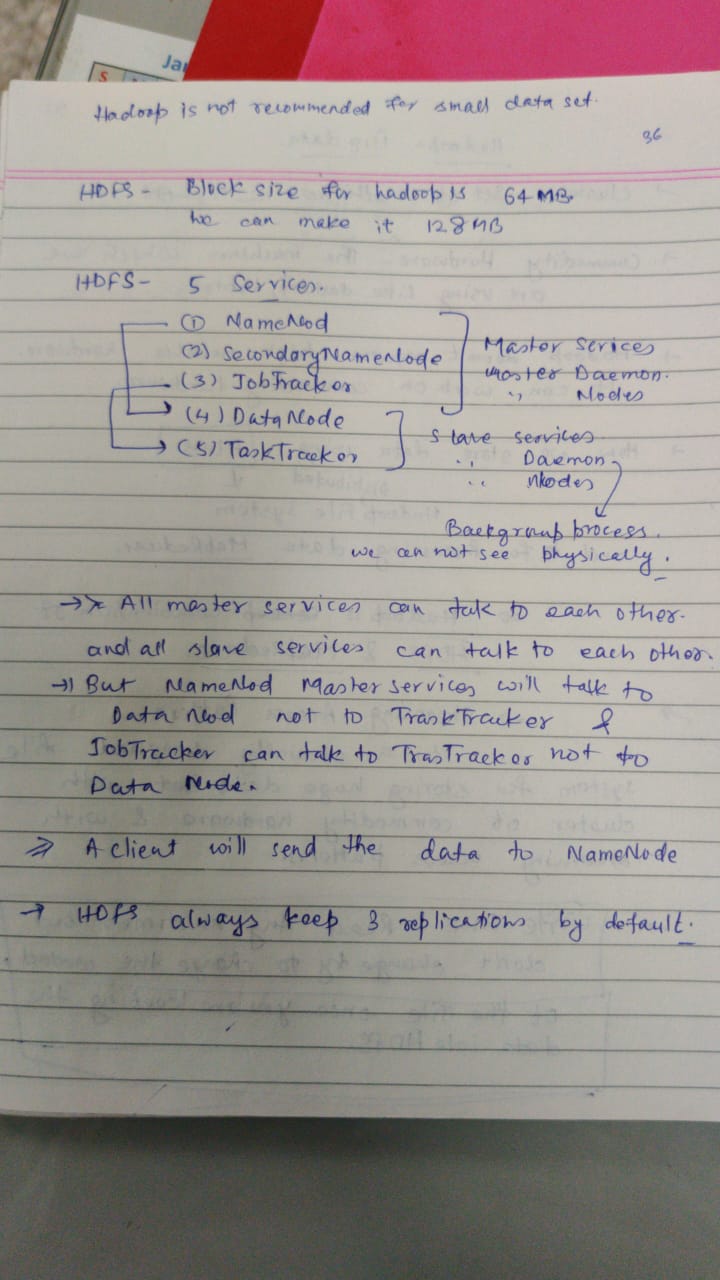 Jan
S
Hadoop is not recommended for small data set.
36
HDFS - Block size for hadoop is 64 MB.
we can make it 128 MB
HDFS - 5 Services.
(1) NameNod
(2) SecondaryNameNode
(3) JobTracker
(4) DataNode
(5) TaskTracker
Master Serices
Master Daemon.
,, Nodes
Slave services
,, Daemon
,, Nodes
Backgroub process.
we can not see physically.
→ All master services can talk to each other.
and all slave services can talk to each other.
→ But NameNod Master services will talk to
Data Nod not to TraskTracker &
JobTracker can talk to TrasTracker not to
Data Node.
⇒ A client will send the data to NameNode
→ HDFS always keep 3 replications by default.